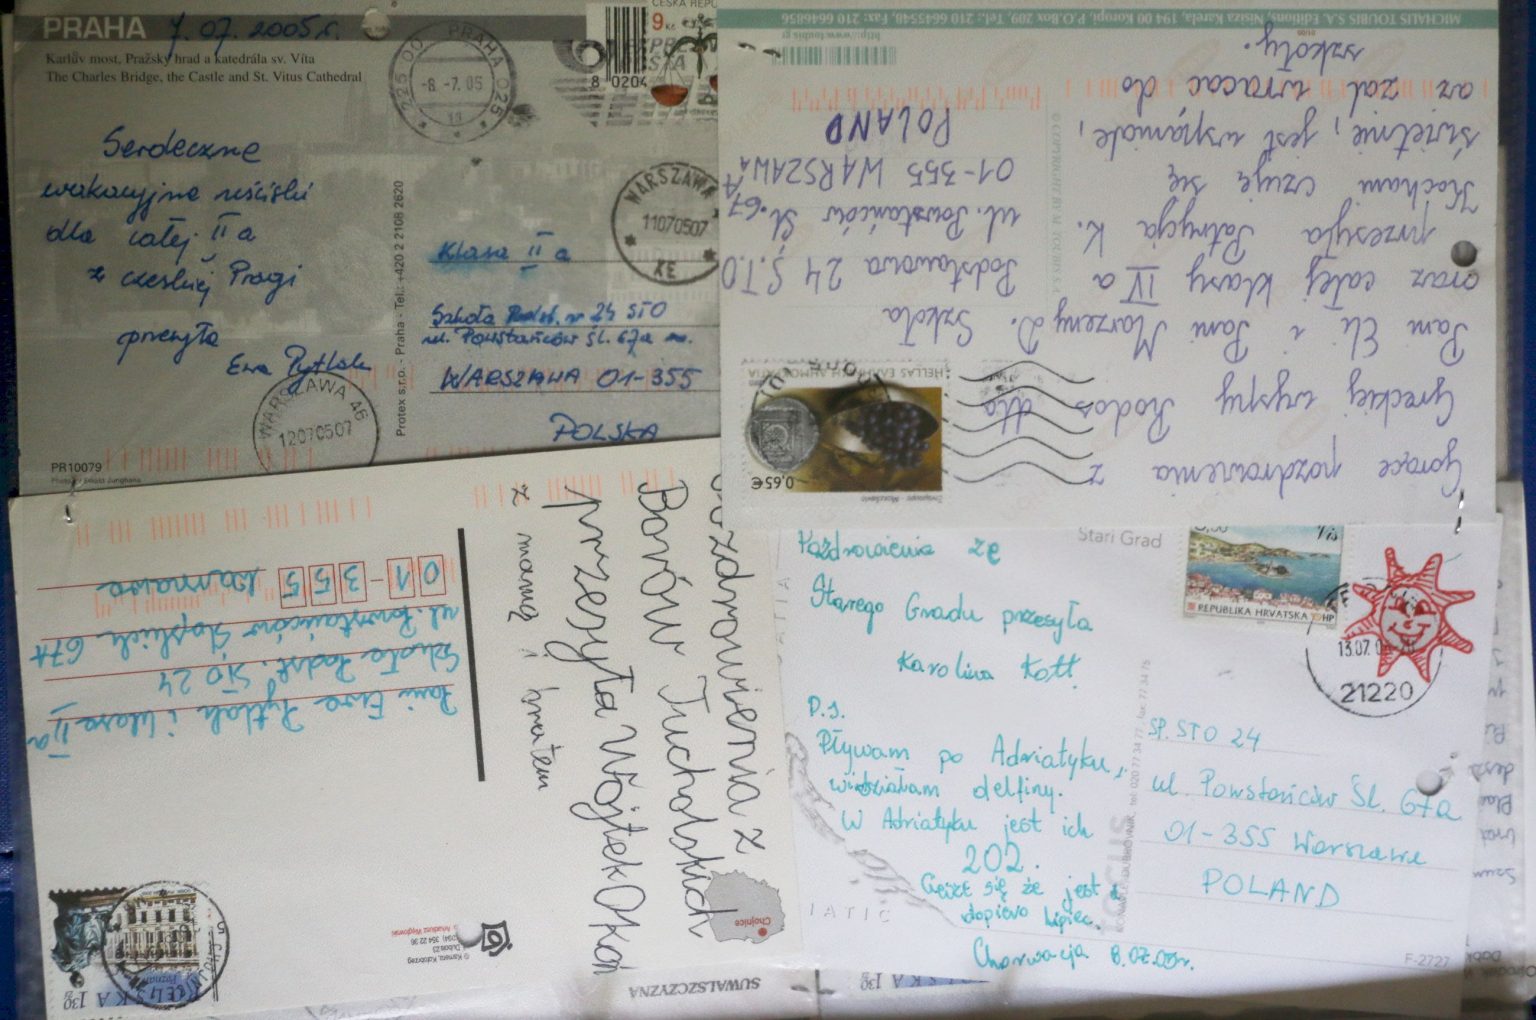 PRAHA
7.07.2005 r.
Karlův most, Pražský hrad a katedrála sv. Víta
The Charles Bridge, the Castle and St. Vitus Cathedral
Serdeczne
wakacyjne uściski
dla całej II a
z czeskiej Pragi
przesyła
Ewa Pytlak
PR10079
Protex s.r.o. - Praha - Tel.: +420 2 2108 2620
225 00 PRAHA 025
-8.-7.05
ČESKÁ REPU
9 Kč
8 0204
WARSZAWA
11070507
XE
Klasa II a
Szkoła Podst. nr 24 STO
ul. Powstańców Śl. 67a
WARSZAWA 01-355
POLSKA
WARSZAWA 46
12070507
MICHALIS TOUBIS EDITIONS S.A., Nisiza Karela, 194 00 Koropi, P.O.Box 209, Tel.: 210 6645548, Fax: 210 6646856
http://www.toubis.gr
© COPYRIGHT BY M. TOUBIS S.A.
Gorące pozdrowienia z
Greckiej wyspy Rodos dla
Pani Eli i Pani Marzeny D.
oraz całej klasy IV a
przesyła Patrycja K.
Kocham czuję się
świetnie, jest wspaniale,
aż żal wracać do
szkoły.
HELLAS
0.65€
Szkoła
Podstawowa 24 S.T.O
ul. Powstańców Śl. 67A
01-355 WARSZAWA
POLAND
Pozdrowienia z
Borów Tucholskich
przesyła Wojtek Okoń
z mamą i bratem
Pani Ewa Pytlak i klasa II a
Szkoła Podst. STO 24
ul. Powstańców Śląskich 67A
01-355 Warszawa
Chojnice
SUWALSZCZYZNA
130
130
Stari Grad
Pozdrowienia ze
Starego Gradu przesyła
Karolina Kott
P.S.
Pływam po Adriatyku,
widziałam delfiny.
W Adriatyku jest ich
202.
Cieszę się że jest
dopiero lipiec.
Chorwacja 8.07.05r.
REPUBLIKA HRVATSKA
HP
13.07.0
21220
SP. STO 24
ul. Powstańców Śl. 67a
01-355 Warszawa
POLAND
F-2727